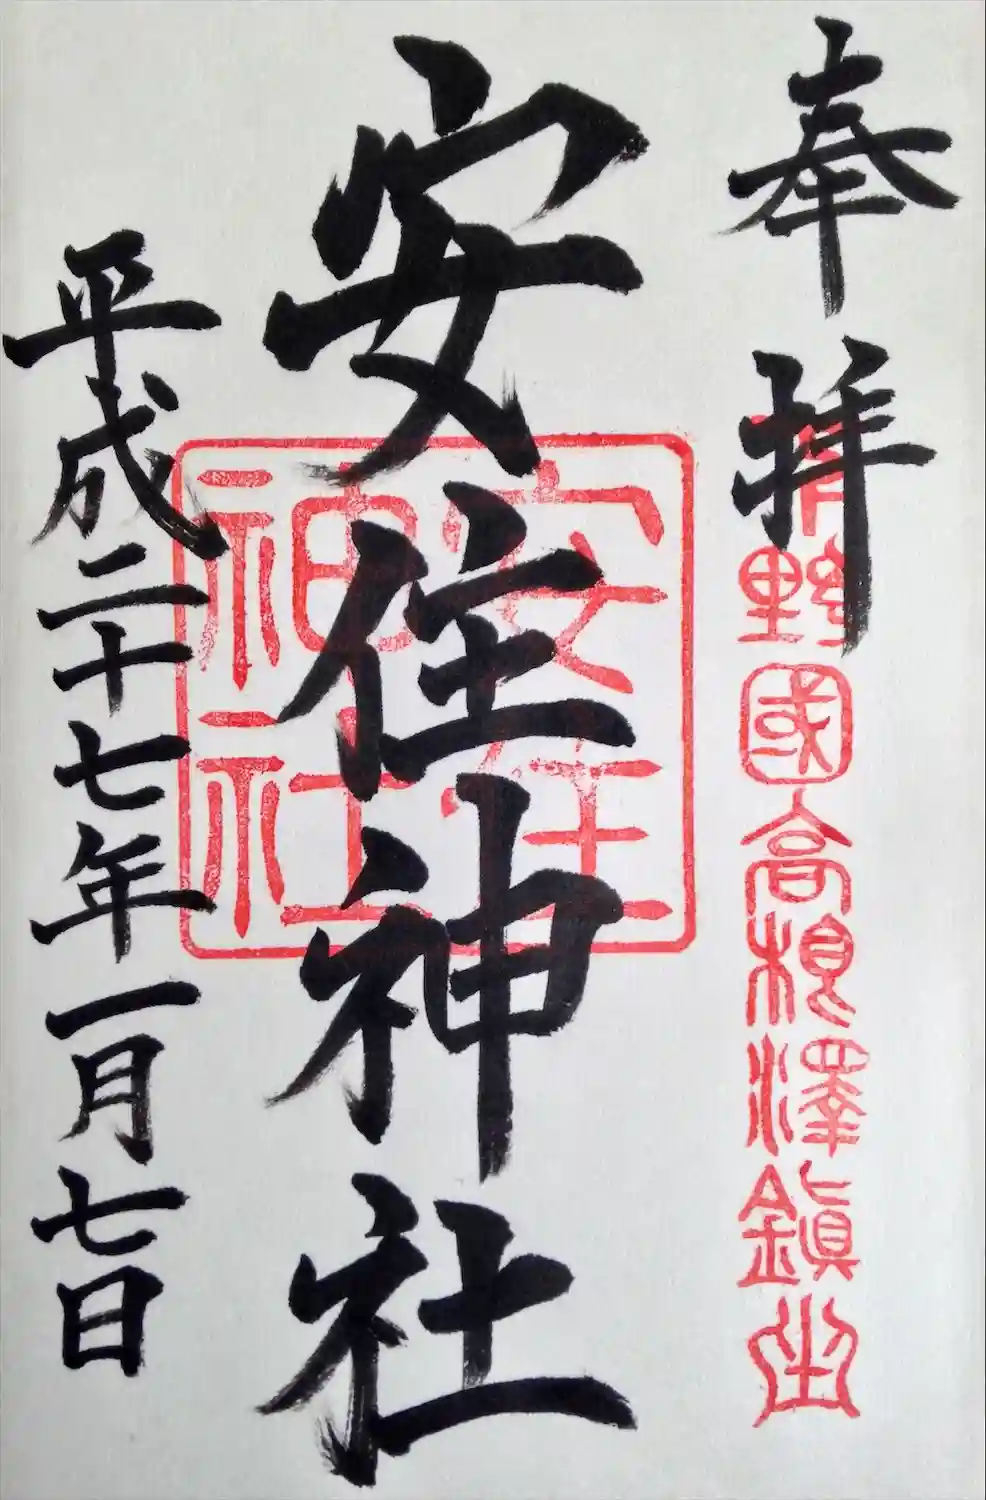 奉拝
下野國高根澤鎮坐
安住神社
安住
神社
平成二十七年一月七日